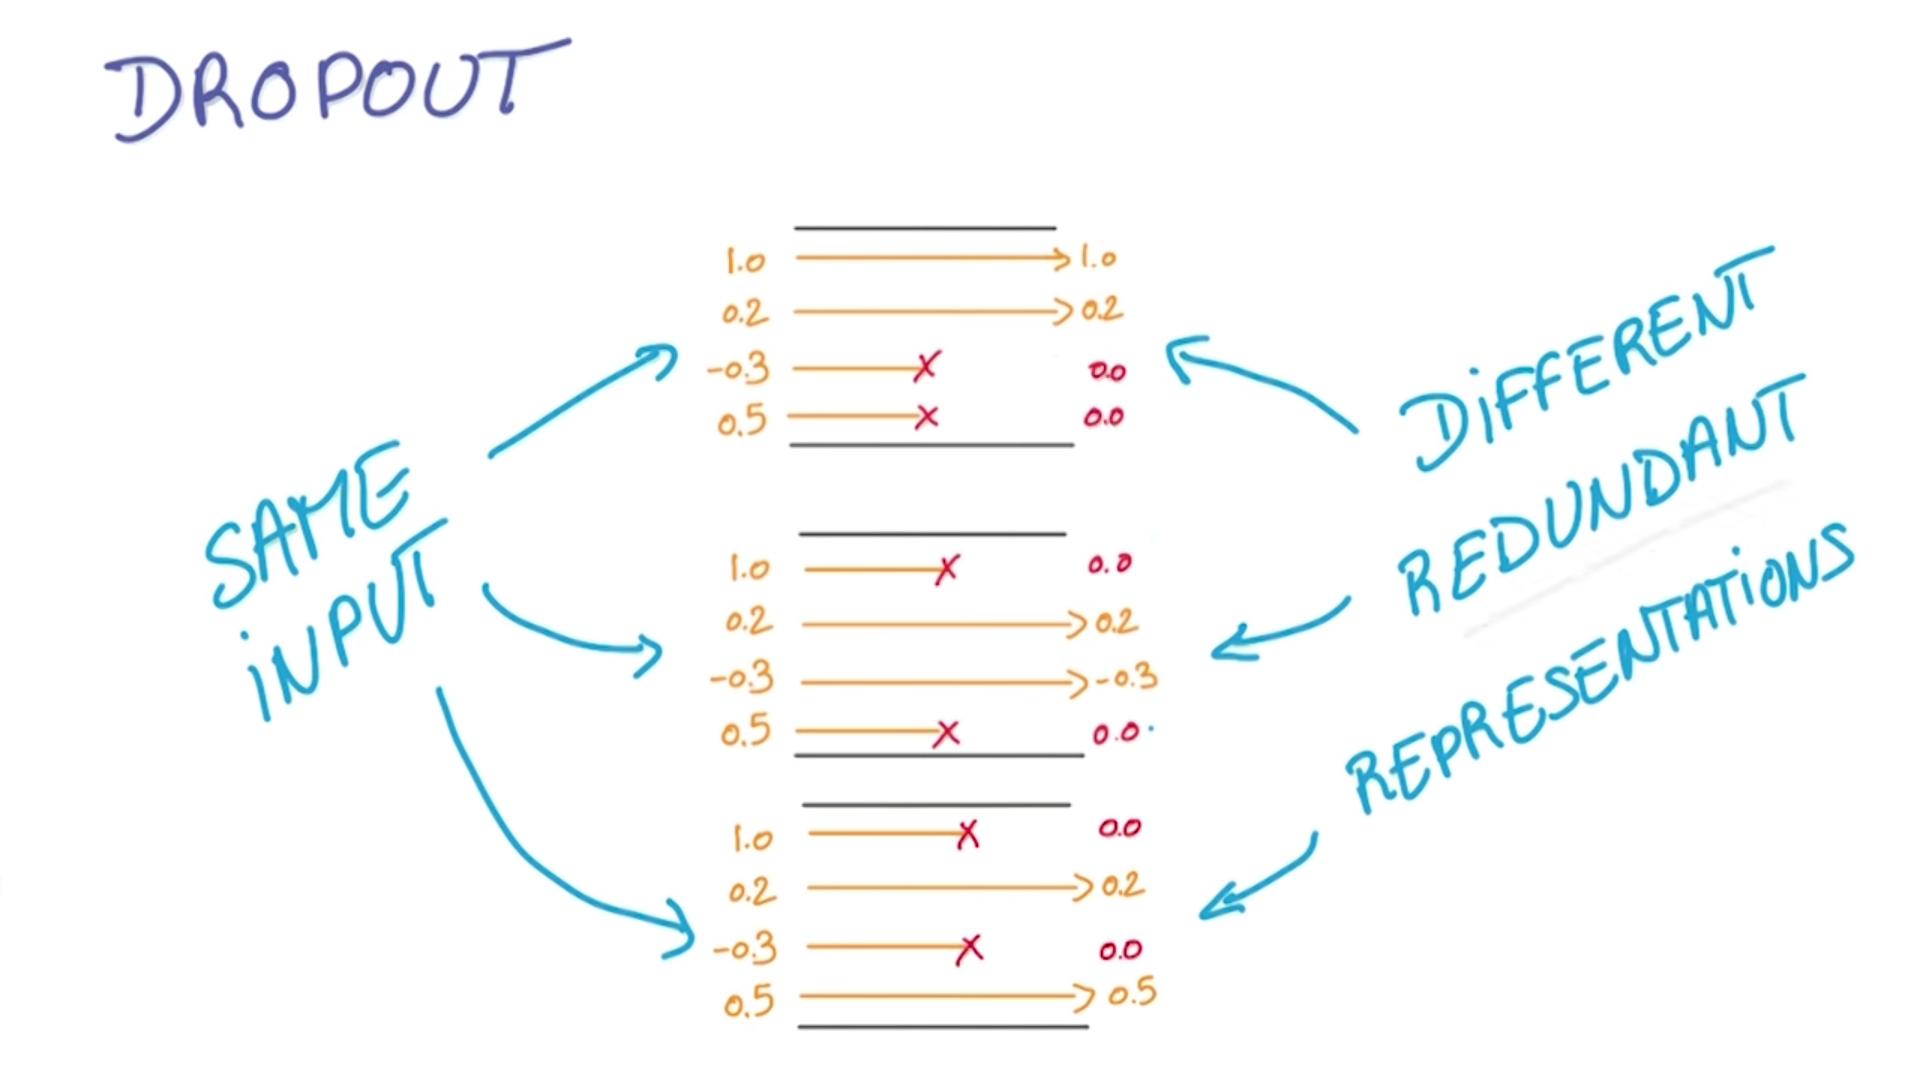 DROPOUT
SAME
iNPUT
1.0 1.0
0.2 0.2
-0.3 0.0
0.5 0.0
1.0 0.0
0.2 0.2
-0.3 -0.3
0.5 0.0
1.0 0.0
0.2 0.2
-0.3 0.0
0.5 0.5
DiFFERENT
REDUNDANT
REPRESENTATiONS